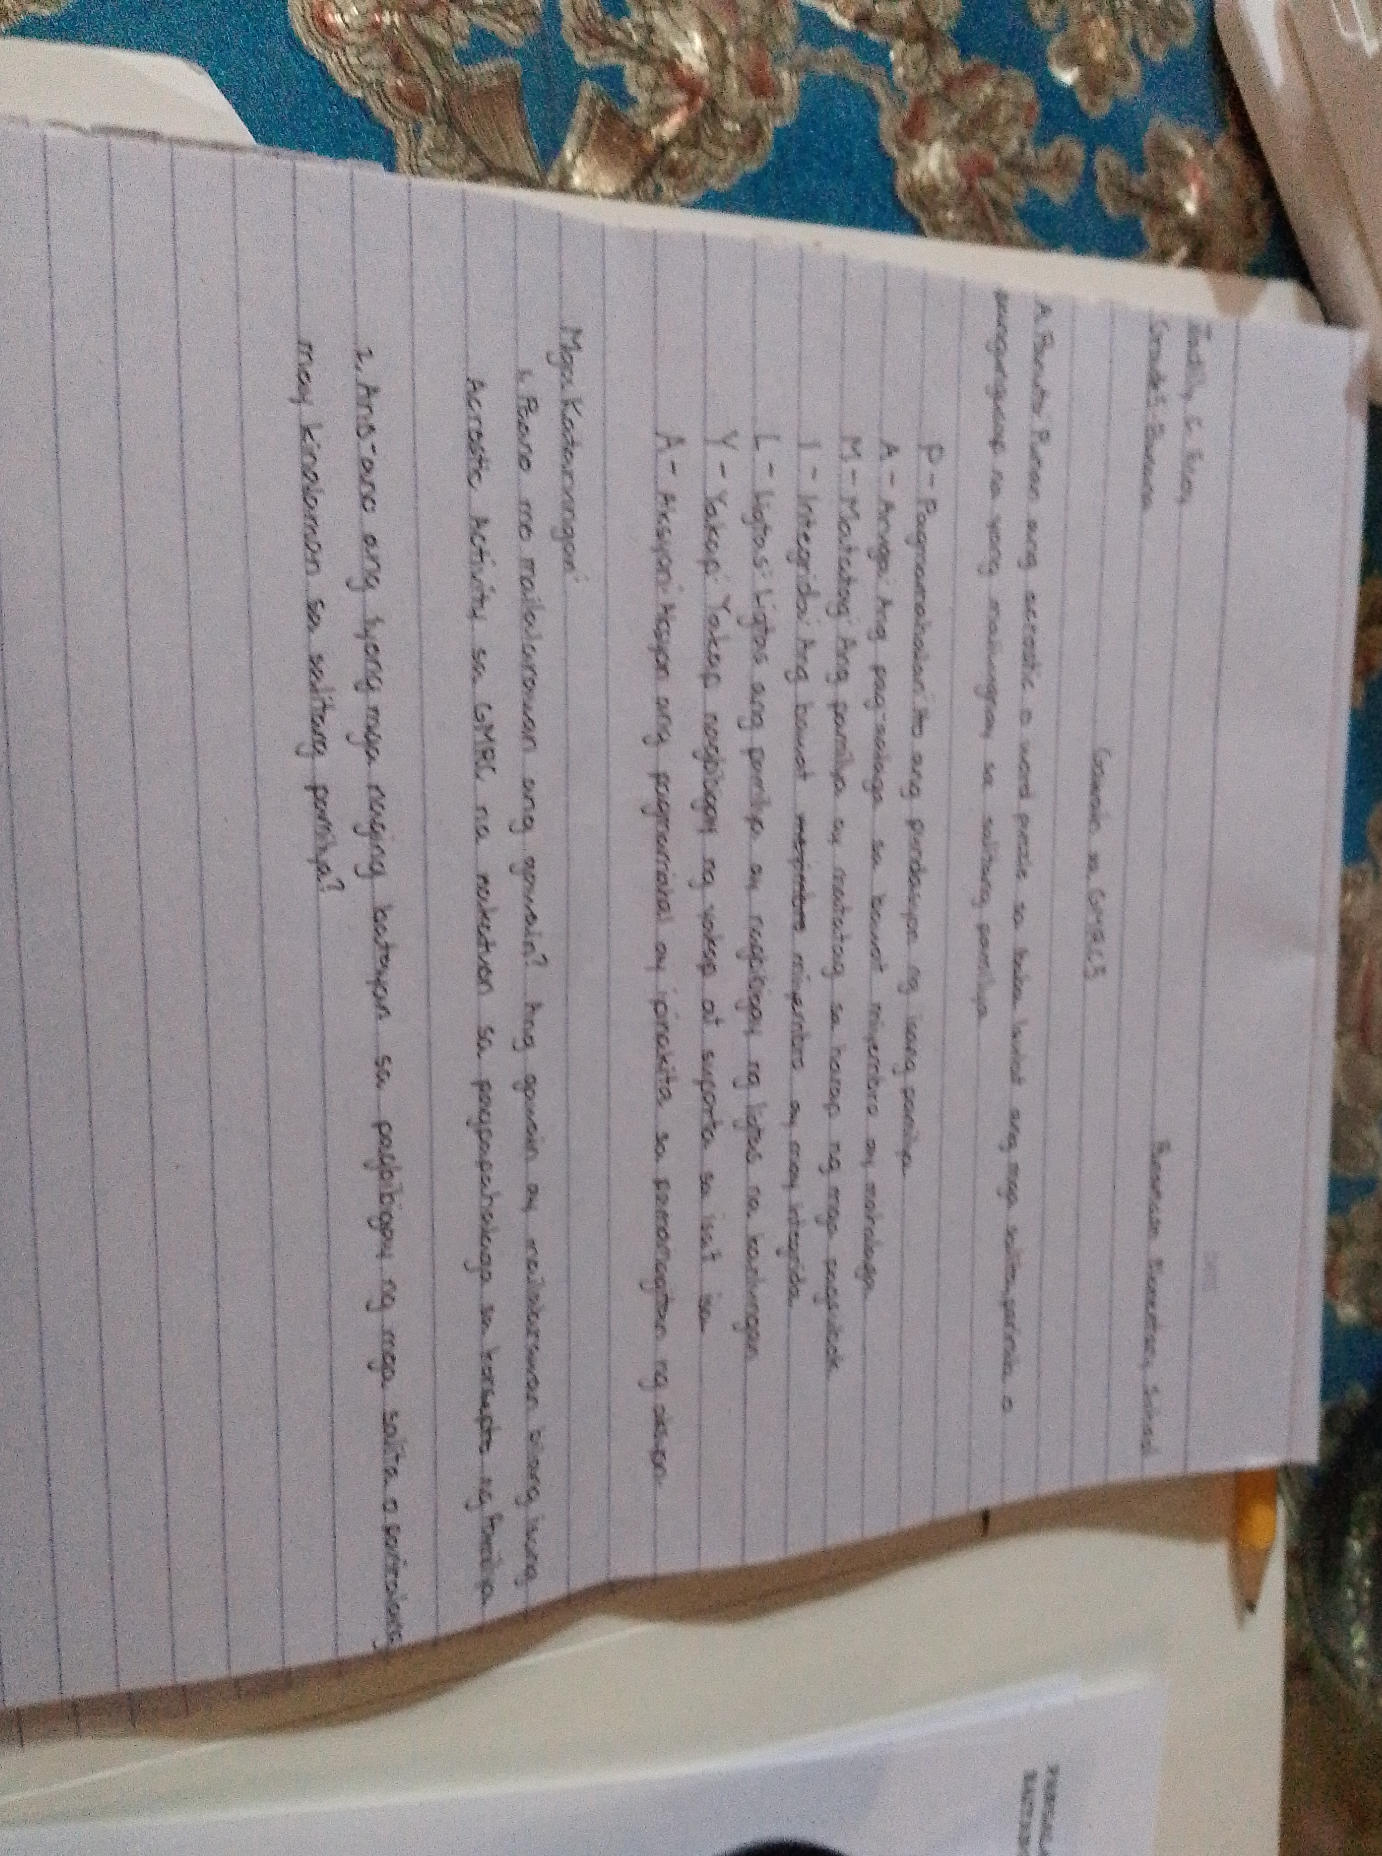 Grade 5 Banana Elementary School
Gawain sa GMRC5
A. Panuto: Punan ang acrostic o word puzzle sa baba lawhat ang mga salita, parirala o
pangungusap na yong matungcay sa salitang pamilya
P - Pagmamahalan: Ito ang pundasyon ng isang pamilya
A - Aruga: Ang pag-aalaga sa bawat miyembro ay mahalaga
M - Matatag: Ang pamilya ay matatag sa harap ng mga pagsubok
I - Integridad: Ang bawat miyembro ay may integridad
L - Ligtas: Ligtas ang pamilya ay nagbibigay ng ligtas na kanlungan
Y - Yakap: Yakap nagbibigay ng yakap at suporta sa isat isa
A - Aksyon: Aksyon ang pagmamahal ay ipinakita sa pamamagitan ng aksyon
Mga Katanungan:
1. Paano mo mailalarawan ang gawain? Ang gawain ay mailalarawan bilang isang
Acrostic Activity sa GMRC na nakatuon sa pagpapahalaga sa konsepto ng Pamilya
2. Ano-ano ang iyong mga naging batayan sa pagbibigay ng mga salita o pariralang
may kinalaman sa salitang pamilya?